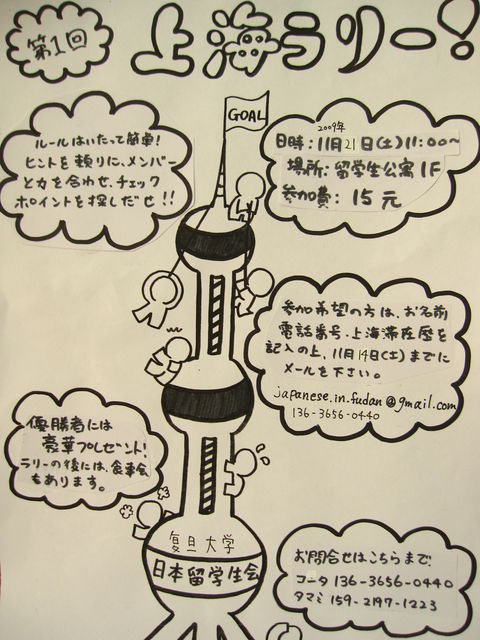 第1回
上海ラリー！
GOAL
ルールはいたって簡単!
ヒントを頼りに、メンバー
と力を合わせ、チェック
ポイントを探しだせ!!
2009年
日時:11月21日(土)11:00～
場所:留学生公寓1F
参加費:15元
参加希望の方は、お名前
電話番号、上海滞在歴を
記入の上、11月14日(土)までに
メールを下さい。
japanese.in.fudan@gmail.com
136-3656-0440
優勝者には
豪華プレゼント!
ラリーの後には、食事会
もあります。
复旦大学
日本留学生会
お問合せはこちらまで:
コータ 136-3656-0440
タマミ 159-2197-1223